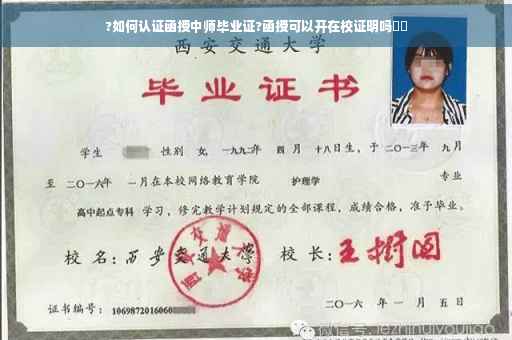 ?如何认证函授中师毕业证?函授可以开在校证明吗
西安交通大学
毕业证书
学生 性别 女,一九九二年 四 月 十八日生,于 二〇一三年 九月
至 二〇一六年 一月在本校网络教育学院 护理学 专业
高中起点专科 学习,修完教学计划规定的全部课程,成绩合格,准予毕业。
校 名:西安交通大学 校 长:王树国
西安交通大学
证书编号: 1069872016060
二〇一六 年 一 月 五 日
微信号: jezhihuiyoujiao